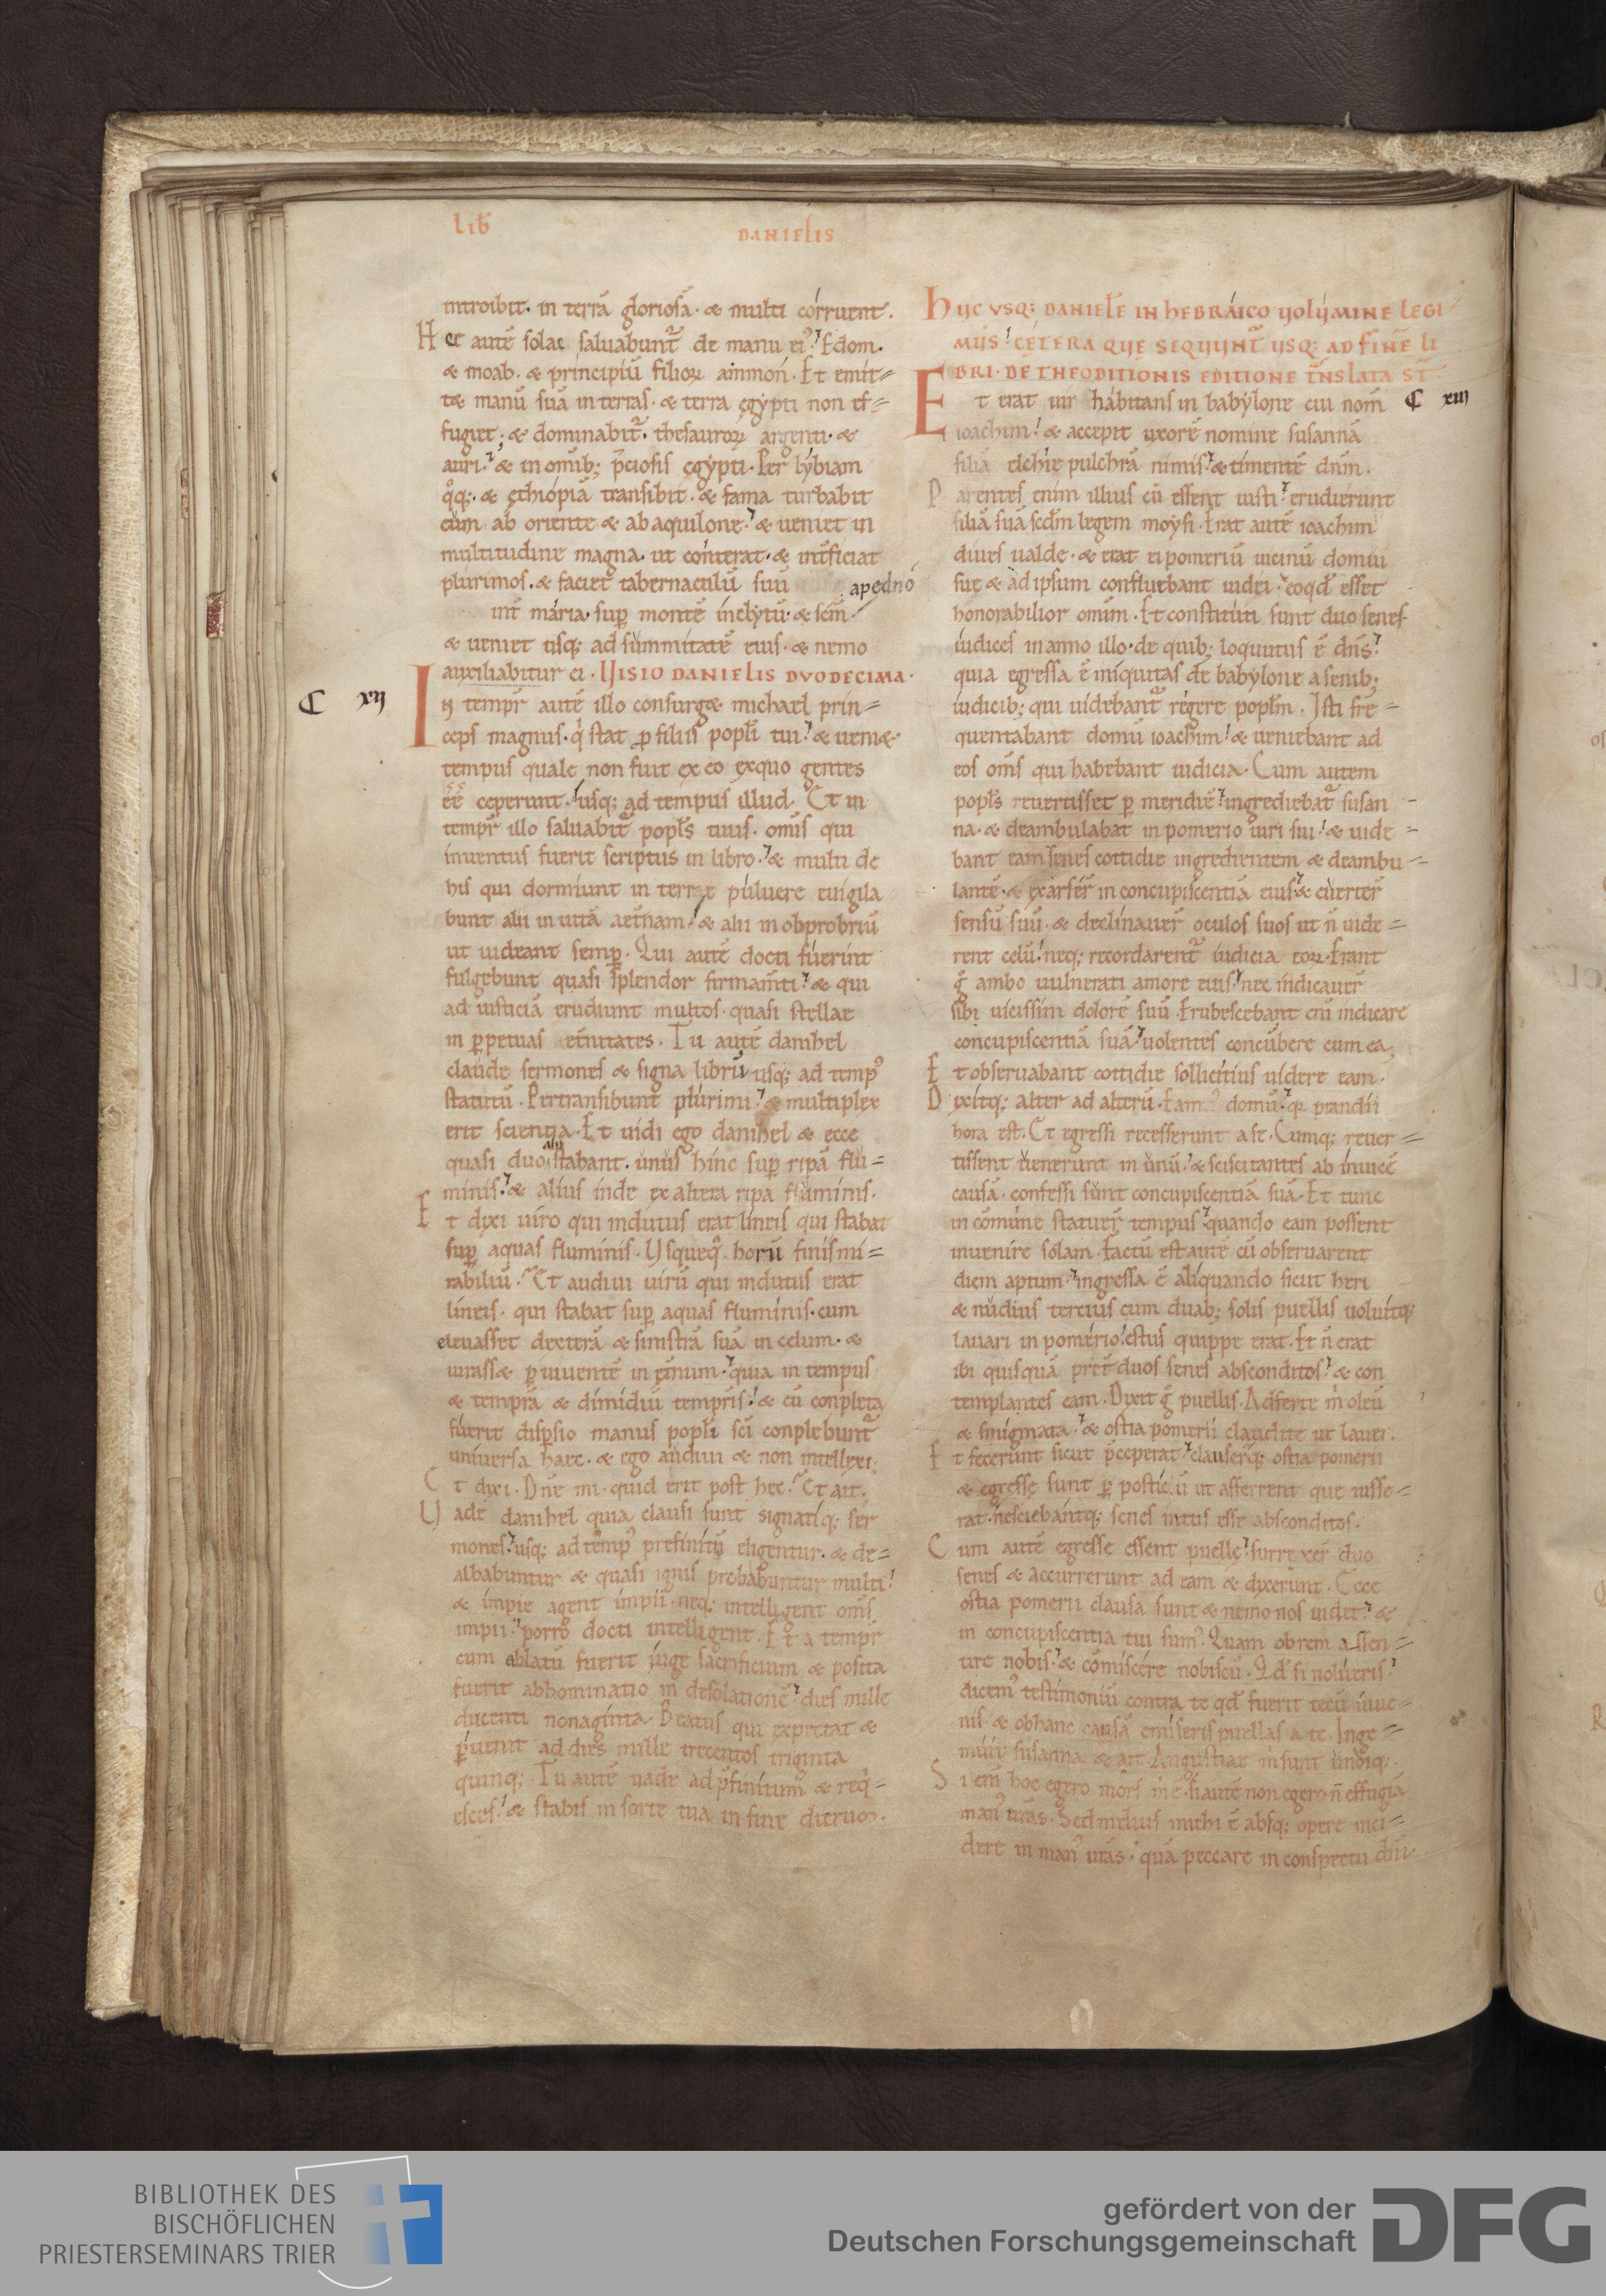 Lib̄ DANIELIS
introibit. in terrā gloriosā. & multi corruent.
Hec autē solae saluabunt᷑ de manu ei᷒. Edom.
& moab. & principiū filioꝝ ammon. Et emit-
t& manū suā in terras. & terra ęgypti non ef-
fugiet; & dominabit᷑. thesauroꝝ argenti. &
auri. & in omib; p̄ciosis ęgypti. Per lybiam
q̊q;. & ęthiopiā transibit. & fama turbabit
eum ab oriente & ab aquilone. & ueniet in
multitudine magna. ut conterat. & int̄ficiat
plurimos. & faciet tabernaculū suū apedno
int̄ maria. suꝑ montē inclytū. & sc̄m
& ueniet usq; ad summitatē eius. & nemo
auxiliabitur ei. VISIO DANIELIS DVODECIMA.
C xij
In tempr̄ autē illo consurg& michael prin-
ceps magnus. q̇ stat ꝓ filiis popl̄i tui. & ueni&
tempus quale non fuit ex eo exquo gentes
ēē ceperunt. usq; ad tempus illud. Et in
tempr̄ illo saluabit᷑ popl̄s tuus. omīs qui
inuentus fuerit scriptus in libro. & multi de
his qui dormiunt in terrae puluere euigila
bunt alii in uitā aet̄nam. & alii in obprobriū
ut uideant semꝑ. Qui autē docti fuerint
fulgebunt quasi splendor firmam̄ti. & qui
ad iusticiā erudiunt multos. quasi stellae
in ꝑpetuas et̄nitates. Tu autē danihel
claude sermones & signa librū usq; ad temp᷒
statutū. Pertransibunt plurimi. & multiplex
erit scientia. Et uidi ego danihel & ecce
quasi duo alii stabant. unus hinc suꝑ ripā flu-
minis. & alius inde ex altera ripa fluminis.
Et dixi uiro qui indutus erat lineis qui stabat
suꝑ aquas fluminis. Vsqueq̊ horū finis mi-
rabiliū. Et audiui uirū qui indutus erat
lineis. qui stabat suꝑ aquas fluminis. cum
eleuasset dexterā & sinistrā suā in celum. &
iurass& ꝑ uiuentē in ęt̄num. quia in tempus
& tempr̄a & dimidiū tempr̄is. & cū conpleta
fuerit disꝑsio manus popl̄i sc̄i conplebunt᷑
uniuersa haec. & ego audiui & non intellexi.
Et dixi. Dn̄e mi. quid erit post hec. Et ait.
Vade danihel quia clausi sunt signatiq; ser
mones. usq; ad temp᷒ prefinitū eligentur. & de-
albabuntur & quasi ignis probabuntur multi.
& impie agent impii. neq; intelligent om̄s
impii. porro docti intelligent. Et a tempr̄
cum ablatū fuerit iuge sacrificium & posita
fuerit abhominatio in desolationē. dies mille
ducenti nonaginta. Beatus qui expectat &
ꝑuenit ad dies mille trecentos triginta
quinq;. Tu autē uade ad p̄finitum & req̇-
esces. & stabis in sorte tua in fine dieruꝝ.
HVC VSQ; DANIELĒ IN HEBRAICO VOLVMINE LEGI-
MVS. CETERA QVE SEQVVNT᷑ VSQ; AD FINĒ LI
BRI. DE THEODITIONIS EDITIONE TN̄SLATA ST̄
Et erat uir habitans in babylone cui nom̄ C xiij
ioachim. & accepit uxorē nomine susannā
filiā elchię pulchrā nimis. & timentē dn̄m.
Parentes enim illius cū essent iusti. erudierunt
filiā suā scd̄m legem moysi. Erat autē ioachim
diues ualde. & erat ei pomeriū uicinū domui
suę & ad ipsum confluebant iudei. eoqd̄ esset
honorabilior omīm. Et constituti sunt duo senes
iudices in anno illo. de quib; loquutus ē dn̄s.
quia egressa ē iniquitas de babylone a senib;
iudicib; qui uidebant᷑ regere popl̄m. Isti fre-
quentabant domū ioachim. & ueniebant ad
eos om̄s qui habebant iudicia. Cum autem
popl̄s reuertisset ꝑ meridiē. ingrediebat᷑ susan-
na. & deambulabat in pomerio uiri sui. & uide-
bant eam senes cottidie ingredientem & deambu-
lantē. & exarser̄ in concupiscentiā eius. & euerter̄
sensū suū. & declinauer̄ oculos suos ut n̄ uide-
rent celū. neq; recordarent᷑ iudicia eoꝝ. Erant
g̊ ambo uulnerati amore eius. nec indicauer̄
sibi uicissim dolorē suū. Erubescebant em̄ indicare
concupiscentiā suā. uolentes concubere cum ea.
Et obseruabant cottidie sollicitius uidere eam.
Dixitq; alter ad alterū. Eam᷒ domū. q̄ prandii
hora est. Et egressi recesserunt a se. Cumq; reuer-
tissent uenerunt in unū. & sciscitantes ab inuicē
causā. confessi sunt concupiscentiā suā. Et tunc
in cōmune statuer̄ tempus. quando eam possent
inuenire solam. Factū est autē cū obseruarent
diem aptum. ingressa ē aliquando sicut heri
& nudius tercius cum duab; solis puellis uoluitq;
lauari in pomerio. estus quippe erat. Et n̄ erat
ibi quisquā pret̄ duos senes absconditos. & con
templantes eam. Dixit g̊ puellis. Adferte ṁ oleū
& smigmata. & ostia pomerii claudite ut lauer.
Et fecerunt sicut p̄ceperat. clauserq; ostia pomerii
& egresse sunt ꝑ posticū ut afferrent que iusse-
rat. nesciebantq; senes intus esse absconditos.
Cum autē egresse essent puelle. surrexer̄ duo
senes & accurrerunt ad eam & dixerunt. Ecce
ostia pomerii clausa sunt & nemo nos uidet. &
in concupiscentia tui sum᷒. Quam obrem assen-
tire nobis. & cōmiscere nobiscū. Qd̄ si nolueris.
dicem᷒ testimoniū contra te qd̄ fuerit tecū iuue-
nis. & obhanc causā emiseris puellas a te. Inge-
muit susanna & ait. Angustiae ṁ sunt undiq;.
Si em̄ hoc egero mors ṁ ē. si autē non egero n̄ effugiā
man᷒ urās. Sed melius michi ē absq; opere inci-
dere in man᷒ urās. quā peccare in conspectu dn̄i
BIBLIOTHEK DES
BISCHÖFLICHEN
PRIESTERSEMINARS TRIER
gefördert von der
Deutschen Forschungsgemeinschaft
DFG